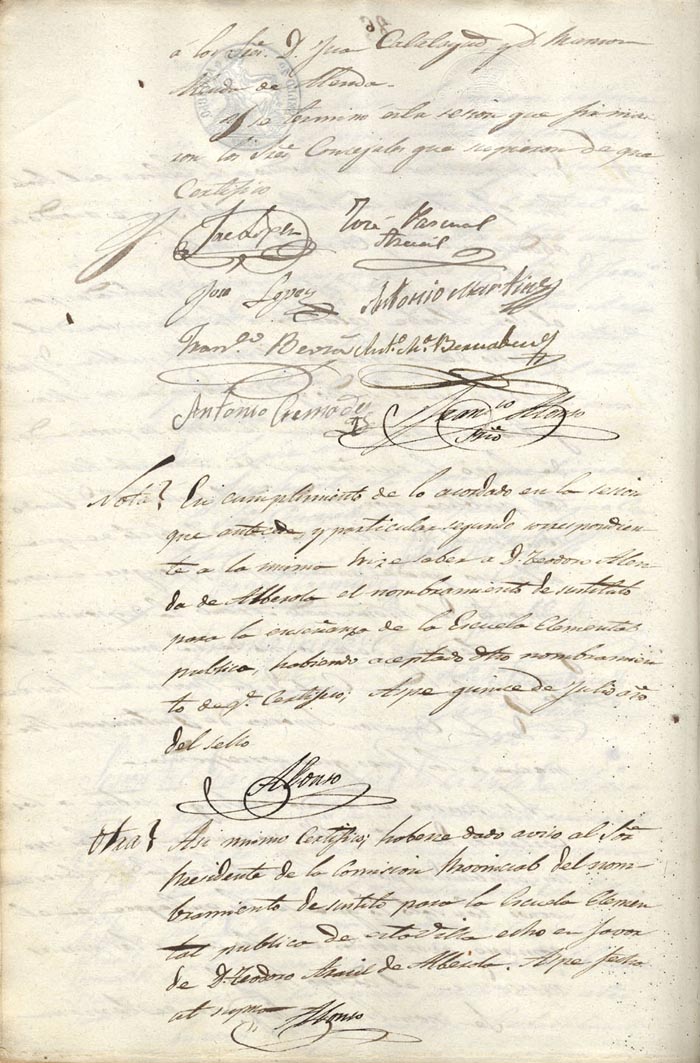 á los Sres. D. Jua Calatayud y D. Ramon
de
y se terminó esta sesion que firma
ron los Sres. Concejales que supieron de que
Certifico
José Pascual
José Lopez Antonio Martinez
Franco. Anto. Ma. Bernabeu
Antonio Cremades Franco Alfonso
Srio
Nota? En cumplimiento de lo acordado en la sesion
que antecede, y particular segundo correspondien-
te a la misma hize saber a D. Teodoro
de Alberola el nombramiento de sustituto
para la enseñanza de la Escuela Elemental
publica, habiendo aceptado dho nombramien
to de q. Certifico; Aspe quince de Julio año
del sello
Alfonso
Otra? Asi mismo Certifico; haberse dado aviso al Sor.
Presidente de la Comision Provincial del nom-
bramiento de sustito para la Escuela Elemen
tal publica de esta Villa echo en favor
de D. Teodoro de Alberola. Aspe fecha
ut supra Alfonso